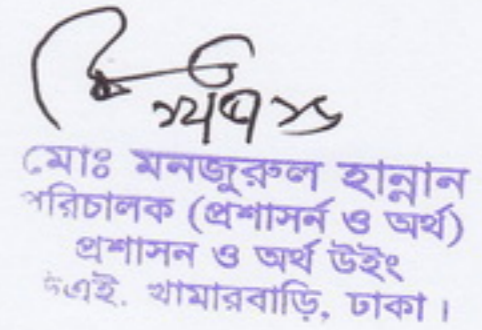 মোঃ মনজুরুল হান্নান
পরিচালক (প্রশাসন ও অর্থ)
প্রশাসন ও অর্থ উইং
খামারবাড়ি, ঢাকা।